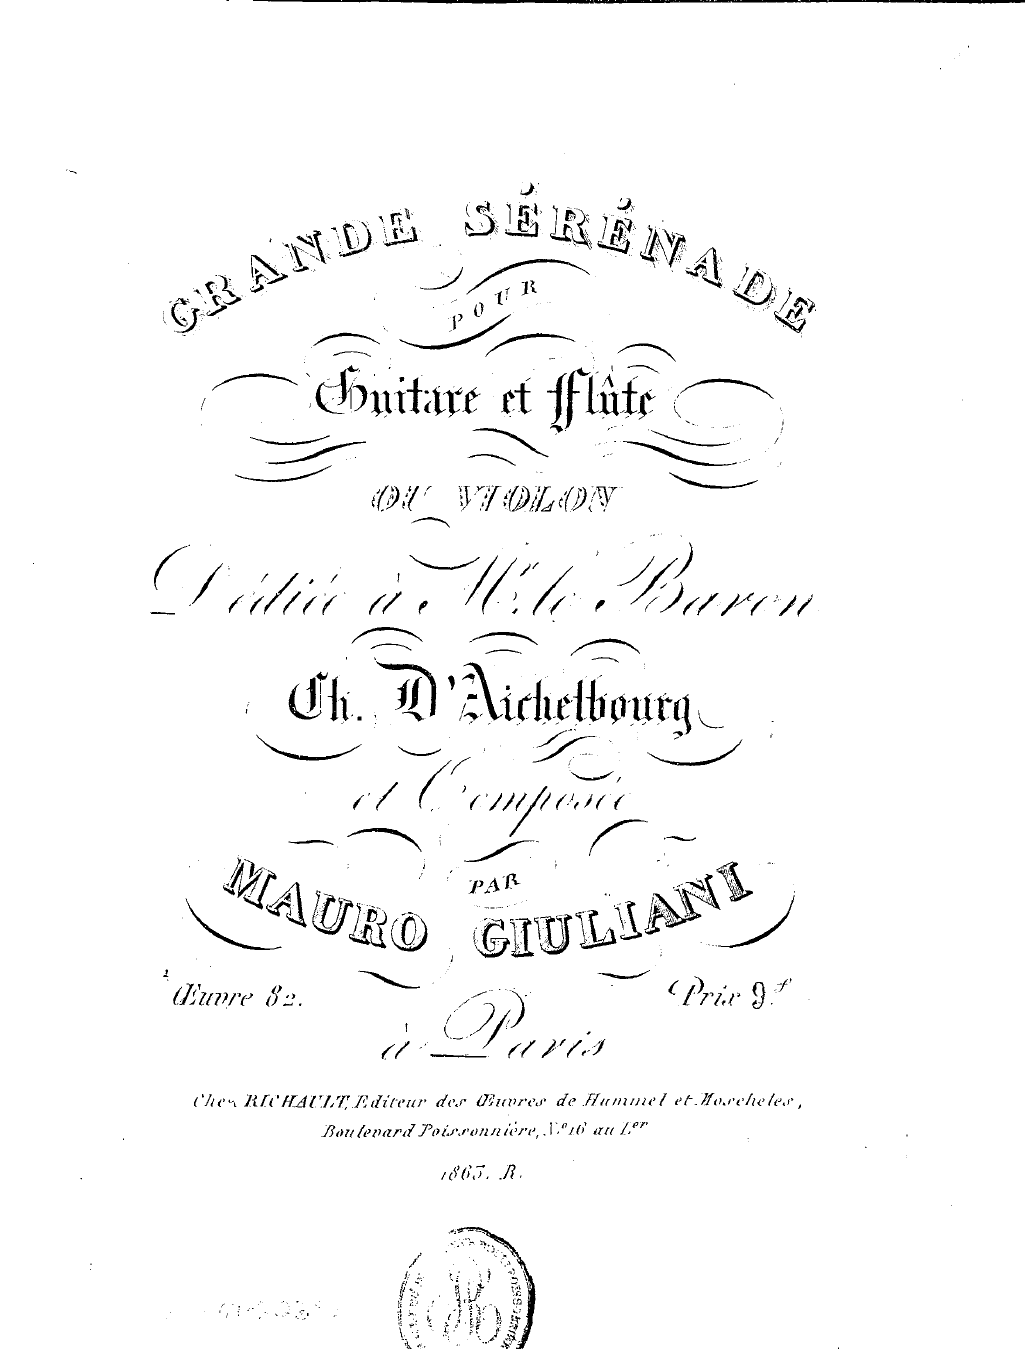 GRANDE SÉRÉNADE
POUR
Guitare et Flûte
OU VIOLON
Dédiée à Mr. le Baron
Ch. D'Aichelbourg
et Composée
PAR
MAURO GIULIANI
Œuvre 82. Prix 9.f
à Paris
Chez RICHAULT, Editeur des Œuvres de Hummel et Moscheles,
Boulevard Poissonnière, N.o 16 au 1.er
1863. R.